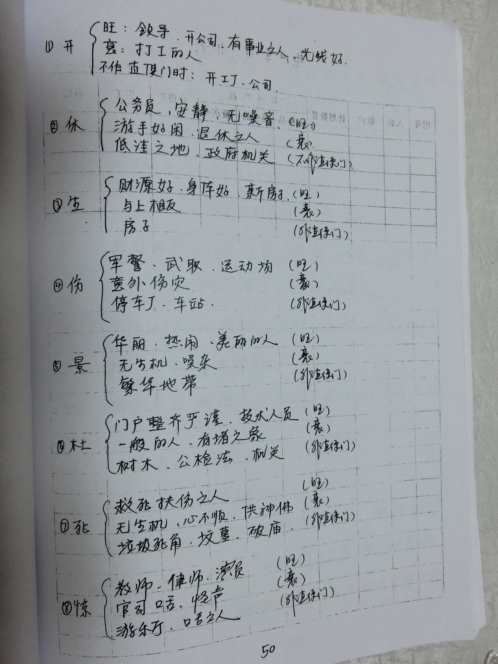 ① 开 旺：领导，开公司，有事业之人，光线好.
衰：打工的人
不作直使门时：开工厂.公司.
② 休 公务员，安静，无噪音.（旺）
游手好闲.退休之人（衰）
低洼之地.政府机关（不作直使门）
③ 生 财源好.身体好.新房子.（旺）
与上相反（衰）
房子（非直使门）
④ 伤 军警.武职.运动场（旺）
意外伤灾（衰）
停车厂.车站.（非直使门）
⑤ 景 华丽.热闹.美丽的人（旺）
无生机.噪杂（衰）
繁华地带（非直使门）
⑥ 杜 门户整齐严谨.技术人员（旺）
一般的人.有堵之象（衰）
树木.公检法.机关（非直使门）
⑦ 死 救死扶伤之人（旺）
无生机，心不顺.供神佛（衰）
垃圾死角.坟墓.破庙.（非直使门）
⑧ 惊 教师.律师.演员（旺）
官司口舌.怪声（衰）
游乐厅.口舌之人（非直使门）
50